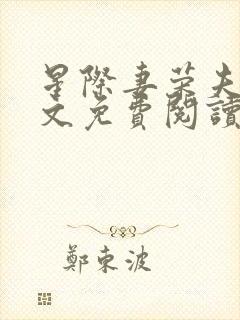 星際妻榮夫
文免費閱讀
鄭東波